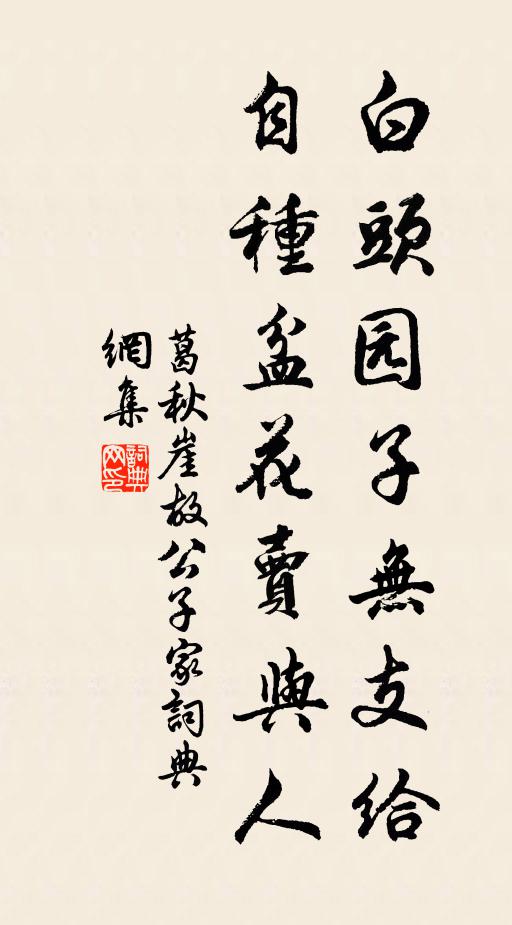 白頭园子無支给
自種盆花賣與人
葛秋崖故公子家詞典
網集
詞典
网印